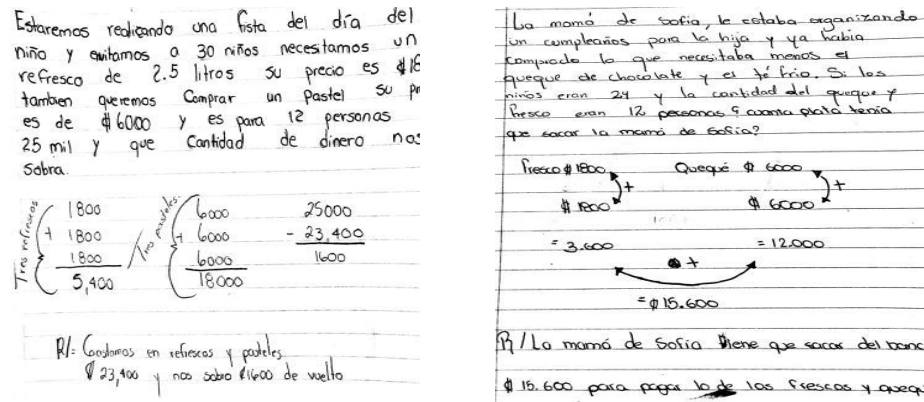 Estaremos realizando una fista del día del
niño y invitamos a 30 niños necesitamos un
refresco de 2.5 litros su precio es ₡18
tambien queremos Comprar un pastel su pr
es de ₡6000 y es para 12 personas
25 mil y que Cantidad de dinero nos
Sobra.
Tres refrescos
1800
+ 1800
1800
5,400
Tres pasteles
6000
+ 6000
6000
18000
25000
- 23,400
1600
R/= Gastamos en refrescos y pasteles
₡ 23,400 y nos sobro ₡1600 de vuelto
La mamá de sofia, le estaba organizando
un cumpleaños para la hija y ya había
comprado lo que necesitaba menos el
queque de chocolate y el té frio. Si los
niños eran 24 y la cantidad del queque y
fresco eran 12 personas ¿ cuanta plata tenía
que sacar la mamá de Sofia?
Fresco ₡ 1800 Queque ₡ 6000
+ +
₡ 1800 ₡ 6000
= 3.600 = 12.000
+
= ₡ 15.600
R/ La mamá de Sofia tiene que sacar del banc
₡ 15.600 para pagar lo de los frescos y queq